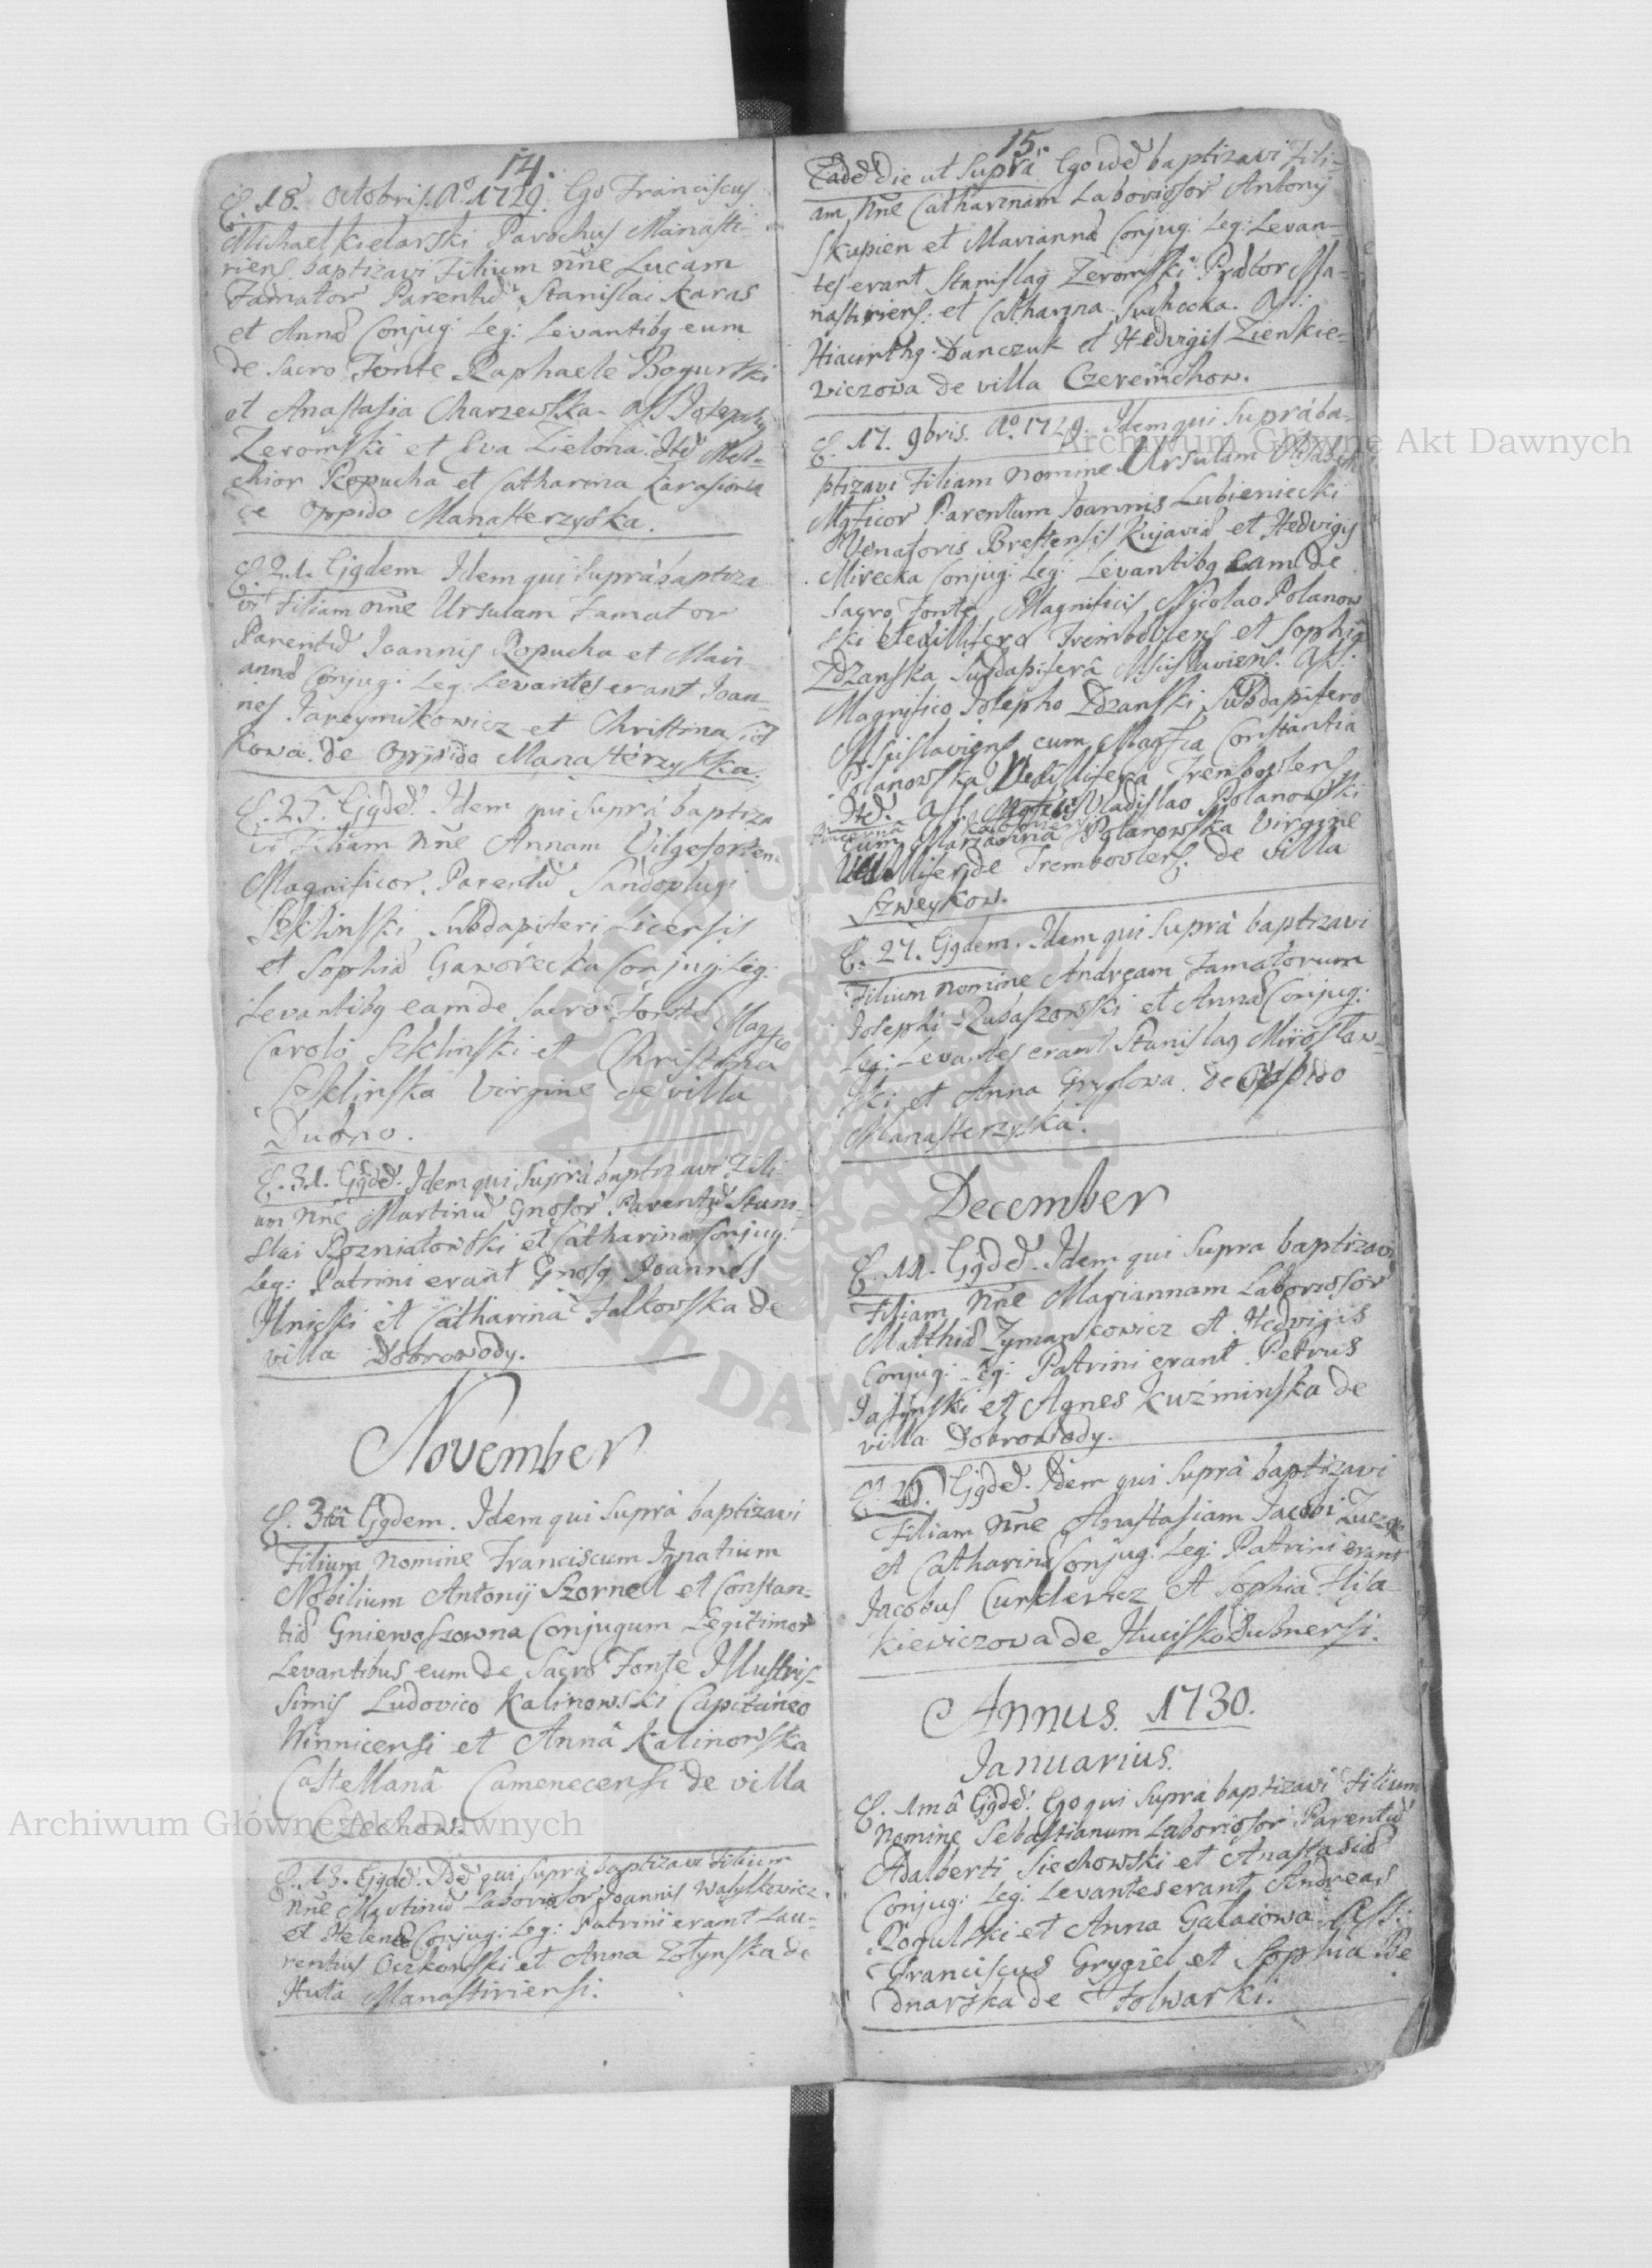 14.
E. 18. Octobris. Aº. 1729. Ego Franciscus
Michael Kielarski Parochus Manasti-
riens. baptizavi Filium nñe Lucam
Famator Parentũ Stanislai Karas
et Annæ Conjug: Leg: Levantibq eum
de Sacro Fonte Raphaele Bogurski
et Anastasia Charzewska. Ass. Josephq
Zeromski et Eva Zielona. Itẽ Mel-
chior Ropucha et Catharina Karasiowa
de Oppido Manasterzyska.
E. 21. Ejqdem Idem qui Supra baptiza
vi Filiam nñe Ursulam Famator
Parentũ Joannis Ropucha et Mari-
annæ Conjug: Leg: Levantes erant Joan-
nes Jareymikowicz et Christina
kowa. de Oppido Manasterzyska.
E. 25. Ejqdẽ. Idem qui Supra baptiza
vi Filiam nñe Annam Vilgefortem
Magnificor. Parentũ Sandoplugi
Szklinski Subdapiferi Licensis
et Sophiæ Gaworecka Conjug: Leg:
Levantibq eam de Sacro Fonte Magfco
Carolo Szklinski et Christina
Szklinska Virgine de villa
Dubno.
E. 31. Ejqdẽ. Idem qui Supra baptizavi Fili-
um nñe Martinũ Gnosor Parentũ Stani-
slai Rozniatowski et Catharinæ Conjug:
Leg: Patrini erant Gnosq Joannes
Ilnicki et Catharina Falkowska de
villa Dobrowody.
November
E. 3tia Ejqdem. Idem qui Supra baptizavi
Filium nomine Franciscum Ignatium
Nobilium Antonij Szornel et Constan-
tiæ Gniewoszowna Conjugum Legitimor
Levantibus eum de Sacro Fonte Illustris-
simis Ludovico Kalinowski Capitaneo
Winnicensi et Annâ Kalinowska
Castellanâ Camenecensi de villa
Czechow.
E. 13. Ejqdẽ. Idẽ qui Supra baptizavi Filium
nñe Martinũ Laborioscr Joannis Wasylkowicz
et Helenæ Conjug: Leg: Patrini erant Lau-
rentius Oczkowski et Anna Zołynska de
Huta Manastiriensi.
15.
Eadẽ die ut Supra Ego idẽ baptizavi Fili-
am nñe Catharinam Laboriosor Antonij
Skupien et Mariannæ Conjug: Leg: Levan-
tes erant Stanislaq Zeromski Prætor Ma-
nastiriens: et Catharina Suchocka. Ass:
Hiacinthq Danczuk et Hedvigis Zienkie-
wiczowa de villa Czereinchow.
E. 17. 9bris. Aº. 1729. Idem qui Supra ba-
ptizavi Filiam nomine Ursulam
Mgficor Parentum Joannis Lubieniecki
Venatoris Brestensis Kujaviæ et Hedvigis
Mirecka Conjug: Leg: Levantibq Eam de
Sacro Fonte Magnificis Nycolao Polanow
ski Vexillifero Trembovlens et Sophiâ
Zdzanska Subdapiferâ Mscislaviens. Ass:
Magnifico Josepho Zdzanski Subdapifero
Mscislaviens cum Magfca Constantia
Polanowska Vexillifera Trembowlens
Itẽ. Ass. Mgfcis Vladislao Polanowski
cum Marianna Polanowska Virgine
Vexilliferide Trembowlens. de villa
Szweykow.
E. 27. Ejqdem. Idem qui Supra baptizavi
Filium nomine Andream Famatorum
Josephi Rubaszowski et Annæ Conjug:
Leg: Levantes erant Stanislaq Mirosław-
ski et Anna Gryglowa. de Oppido
Manasterzyska.
December
E. 11. Ejqdẽ. Idem qui Supra baptizavi
Filiam nñe Mariannam Laboriosor
Matthiæ Zymankowicz et Hedvigis
Conjug: Leg: Patrini erant Petrus
Jasinski et Agnes Kuźminska de
villa Dobrowody.
Ejqdẽ. Idem qui Supra baptizavi
Filiam nñe Anastasiam Jacobi
et Catharinæ Conjug: Leg: Patrini erant
Jacobus Curklewicz et Sophia Elija-
kieviczova de Hucisko Dubnensi.
Annus. 1730.
Januarius.
E. 1mâ Ejqdẽ. Ego qui Supra baptizavi Filium
nomine Sebastianum Laboriosor Parentũ
Adalberti Siechowski et Anastasiæ
Conjug: Leg: Levantes erant Andreas
Rogulski et Anna Galaiowa Ass:
Franciscus Grygiel et Sophia Be
dnarska de Folwarki.
Archiwum Główne Akt Dawnych
Archiwum Główne Akt Dawnych